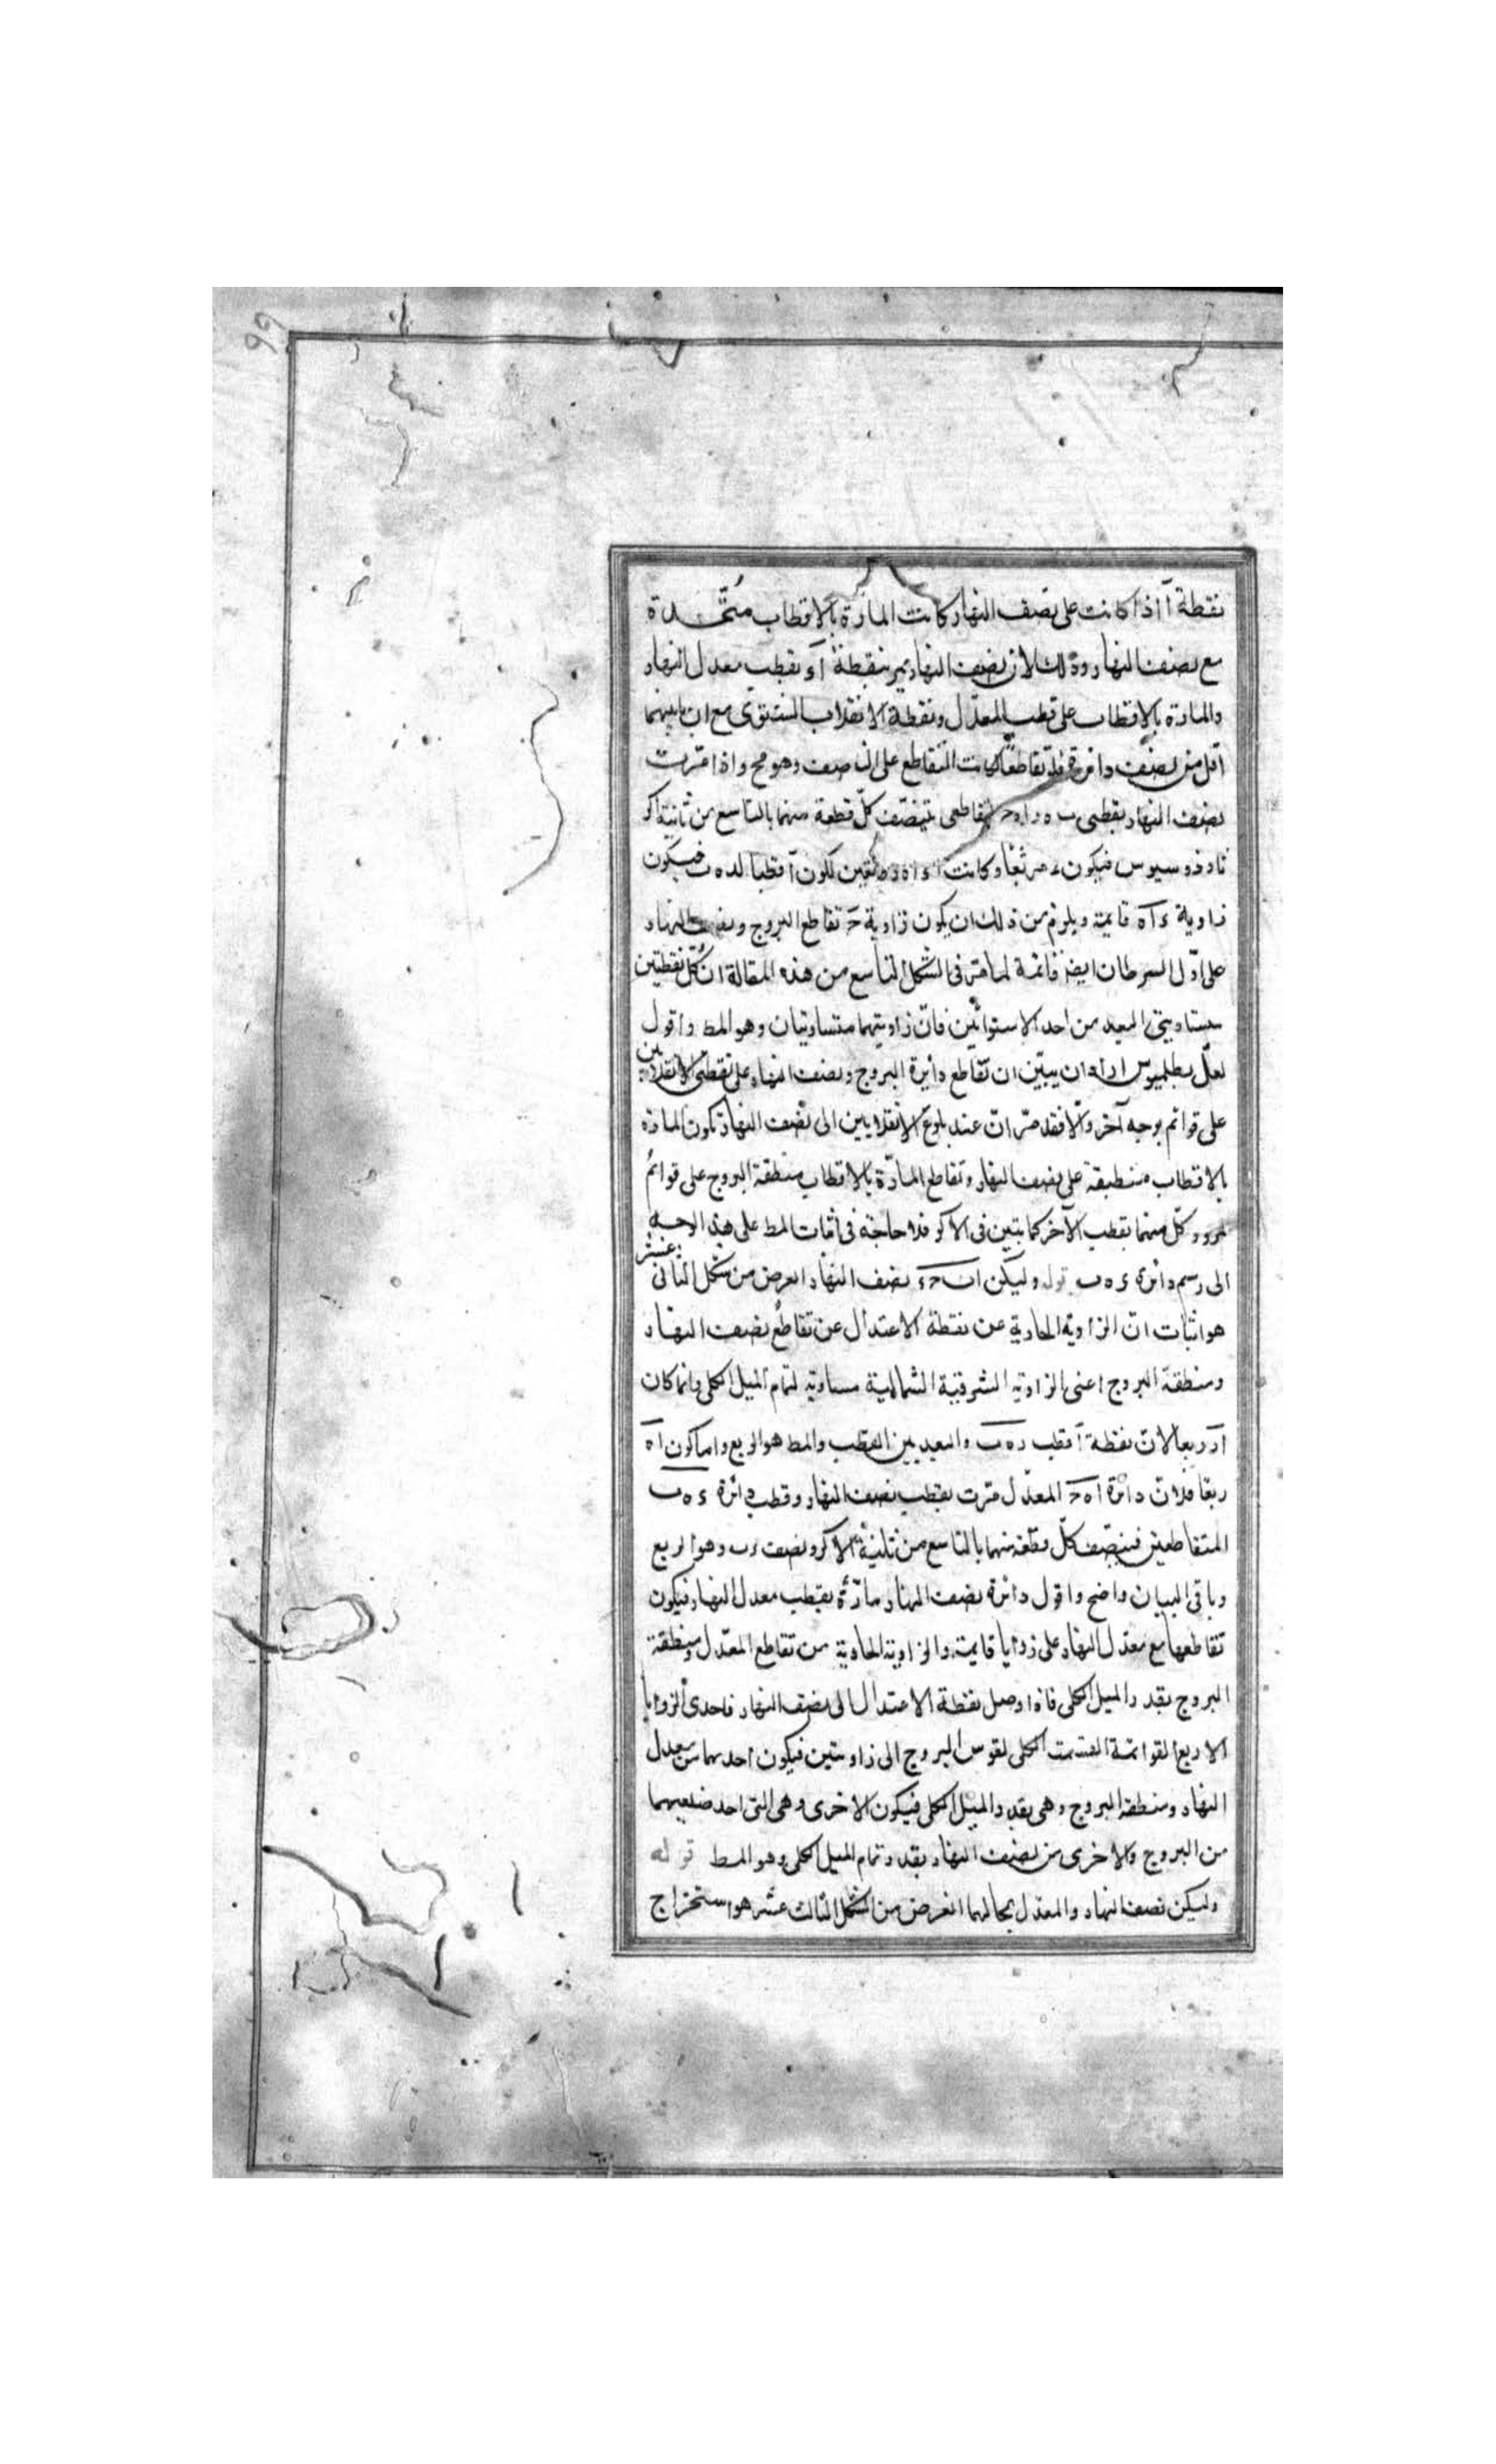 ٩٩
نقطة آ اذا كانت على نصف النهار كانت المارة بالاقطاب متحدة
مع نصف النهار وذلك لان نصف النهار يمر بنقطة آ و بقطب معدل النهار
والمارة بالاقطاب على قطب المعدل ونقطة الانقلاب الشتوى مع ان ما بينهما
اقل من نصف دائرة فلو تقاطعتا كانت التقاطع على انصاف وهو مح واذا مرت
نصف النهار بقطبى ب ه د ا ه ح المقاطعى يتنصف كل قطعة منهما بالتاسع من ثانية اكر
ثاوذوسيوس فيكون ء مربعا وكانت لكون آ قطبا لد ه ب فيكون
زاوية ء آ ه قايمة ويلزم من ذلك ان يكون زاوية ح تقاطع البروج ونصف النهار
على اول السرطان ايضا قائمة لما مر فى الشكل التاسع من هذه المقالة ان كل نقطتين
متساويتى البعد من احد الاستوائين فان زاويتيهما متساويتان وهو المط واقول
لعل بطلميوس اراد ان يبين ان تقاطع دائرة البروج ونصف النهار على نقطتى الانقلابين
على قوائم بوجه آخر والا فقد مر ان عند بلوغ الانقلابين الى نصف النهار تكون المارة
بالاقطاب منطبقة على نصف النهار وتقاطع المارة بالاقطاب منطقة البروج على قوائم
لمرور كل منهما بقطب الآخر كما يتبين فى الاكر فلا حاجة فى اثبات المط على هذا الوجه
الى رسم دائرة ء ه ب قوله وليكن ا ب ح ء نصف النهار الغرض من شكل الثانى عشر
هو اثبات ان الزاوية الحادية عن نقطة الاعتدال عن تقاطع نصف النهار
ومنطقة البروج اعنى الزاوية الشرقية الشمالية مساوية لتمام الميل الكلى وانما كان
آ د ربعا لان نقطة آ قطب د ه ب والبعد بين القطب والمط هو الربع واما كون ا ه
ربعا فلان دائرة ا ه ح المعدل مرت بقطب نصف النهار وقطب دائرة ء ه ب
المتقاطعين فينصف كل قطعة منهما بالتاسع من ثانية الاكر ونصف د ب وهو الربع
وباقى البيان واضح واقول دائرة نصف النهار مارة بقطب معدل النهار فيكون
تقاطعها مع معدل النهار على زوايا قايمة والزاوية الحادية من تقاطع المعدل ومنطقة
البروج بقدر الميل الكلى فاذا وصل نقطة الاعتدال الى نصف النهار فاحدى الزوايا
الاربع القوائمة انقسمت الكلى لقوس البروج الى زاويتين فيكون احدهما من معدل
النهار ومنطقة البروج وهى بقدر الميل الكلى فيكون الاخرى وهى التى احد ضلعيهما
من البروج والاخرى من نصف النهار بقدر تمام الميل الكلى وهو المط قوله
وليكن نصف النهار والمعدل بحالهما الغرض من الشكل الثالث عشر هو استخراج